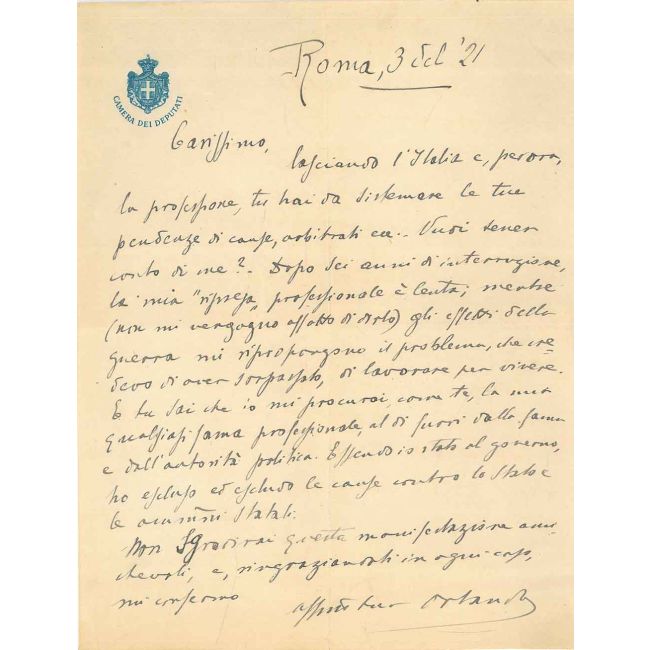 CAMERA DEI DEPUTATI
Roma, 3 dic '21
Carissimo,
lasciando l'Italia e, per ora,
la professione, tu hai da sistemare le tue
pendenze di cause, arbitrati ecc.. Vuoi tener
conto di me? - Dopo sei anni di interruzione,
la mia "ripresa" professionale è lenta; mentre
(non mi vergogno affatto di dirlo) gli effetti della
guerra mi ripropongono il problema, che cre-
devo di aver sorpassato, di lavorare per vivere.
E tu sai che io mi procurai, come te, la mia
qualsiasi fama professionale, al di fuori dalla fama
e dall'autorità politica. Essendo io stato al governo,
ho escluso ed escludo le cause contro lo Stato e
le ammni statali.
Non sgradirai questa manifestazione ami-
chevoli, e, ringraziandoti in ogni caso,
mi confermo
aff tuo Orlando